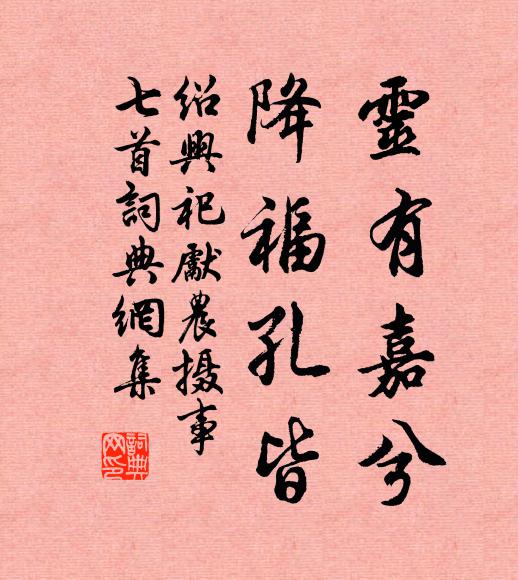 靈有嘉兮
降福孔皆
绍興祀獻農摄事
七首詞典網集
詞典网印